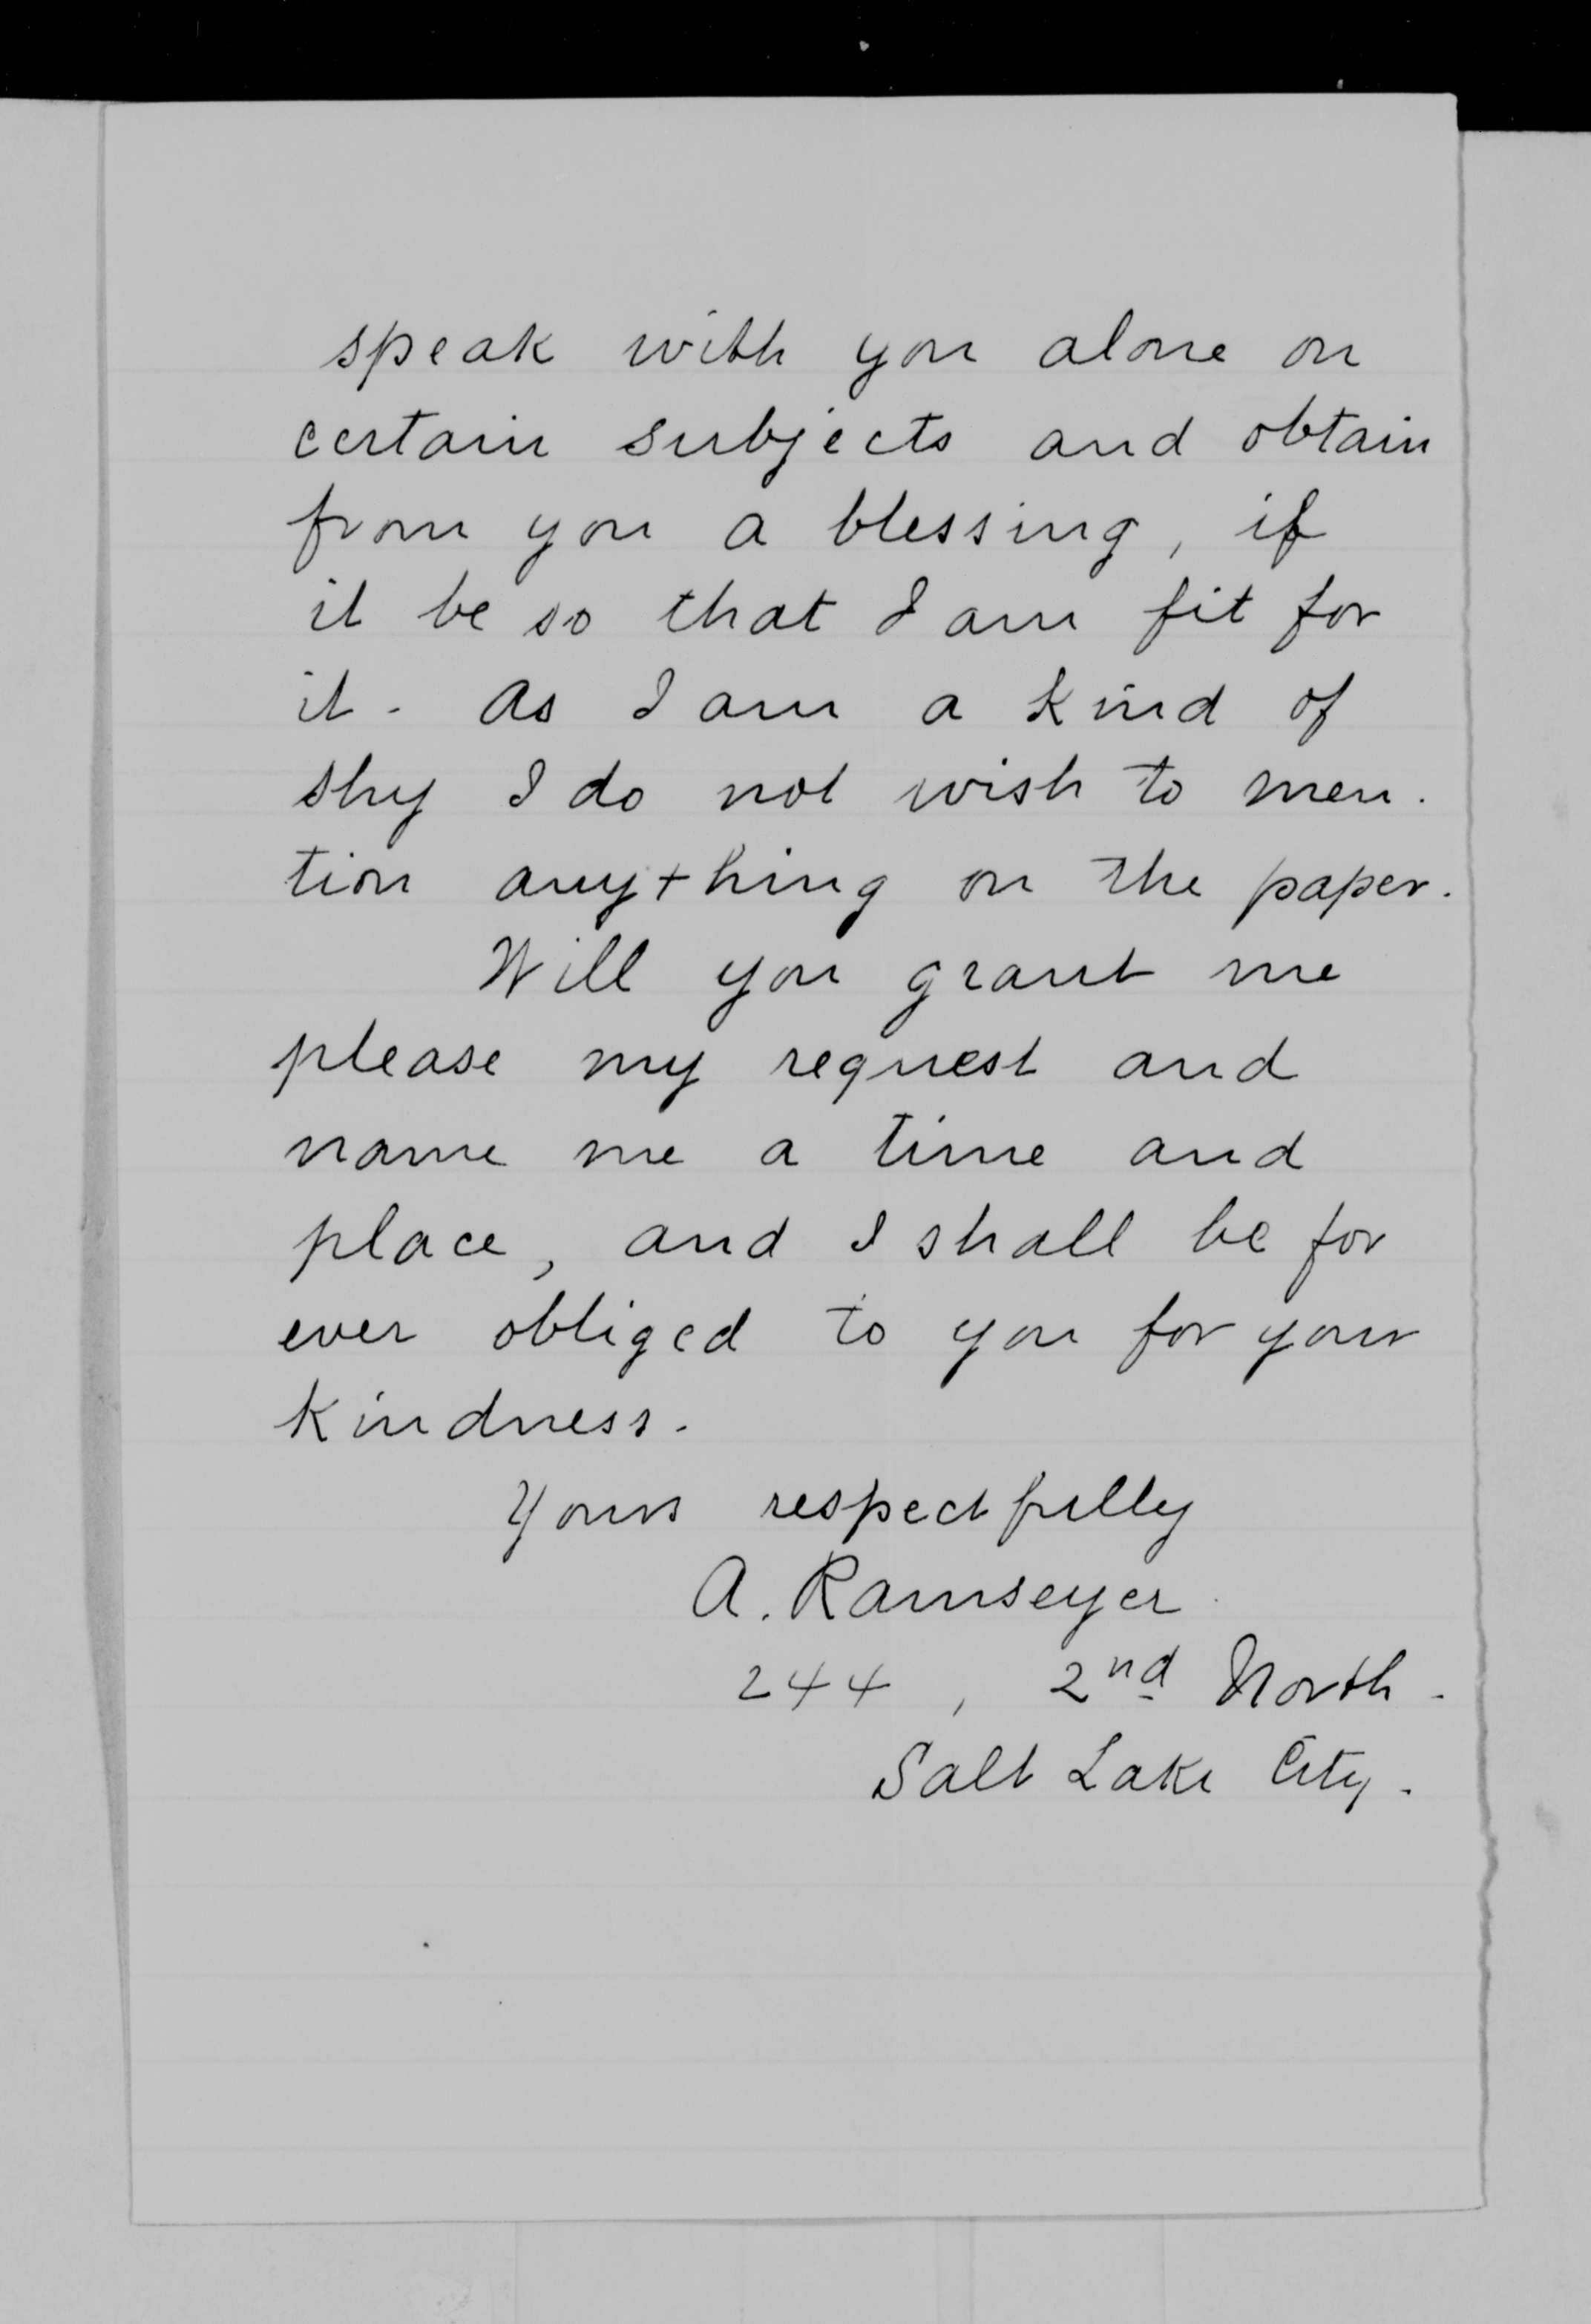 speak with you alone on
certain subjects and obtain
from you a blessing, if
it be so that I am fit for
it. As I am a kind of
shy I do not wish to men-
tion anything on the paper.
Will you grant me
please my request and
name me a time and
place, and I shall be for
ever obliged to you for your
kindness.
Yours respectfully
A. Ramseyer
244, 2nd North.
Salt Lake City.